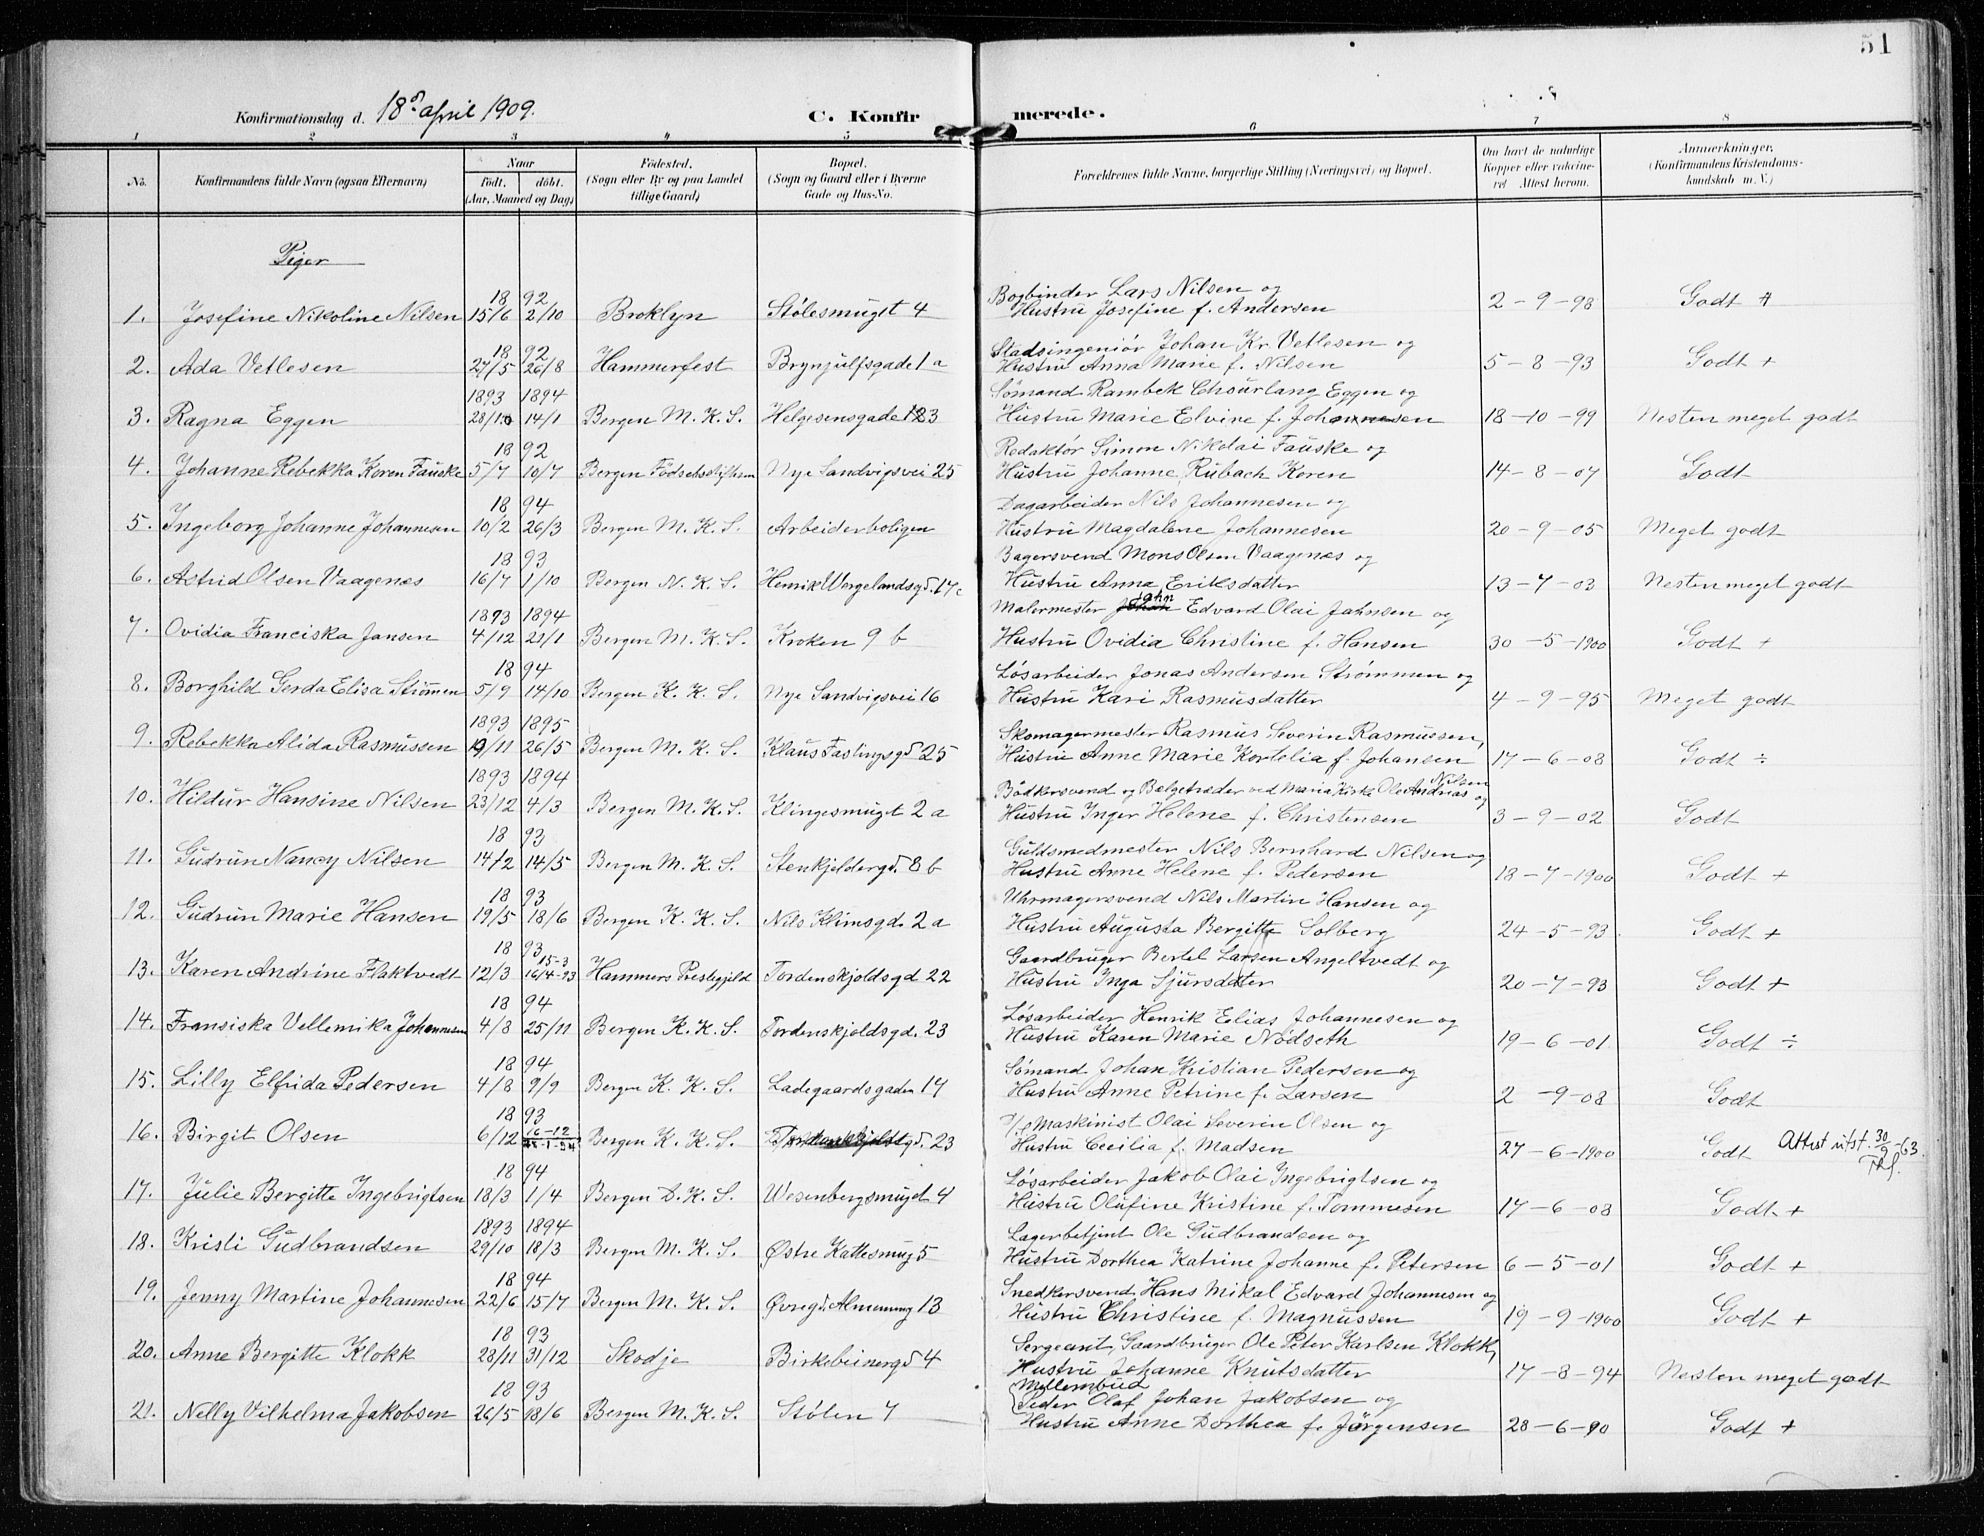 51
Konfirmationsdag d. 18de april 1909. C. Konfirmerede.
1 2 3 4 5 6 7 8
No. Konfirmandens fulde Navn (ogsaa Efternavn) Naar født. døbt. (Aar, Maaned og Dag) Fødested. (Sogn eller By og paa Landet tillige Gaard) Bopæl. (Sogn og Gaard eller i Byerne Gade og Hus-No. Forældrenes fulde Navne, borgerlige Stilling (Næringsvei) og Bopæl. Om havt de naturlige Kopper eller vaccineret Attest herom. Anmærkninger. (Konfirmandens Kristendomskundskab m. V.)
Piger
18 92 Bogbinder Lars Nilsen og
1. Josefine Nikoline Nilsen 15/6 2/10 Broklyn Stølesmuget 4 Hustru Josefine f. Andersen 2-9-98 Godt +
18 92 Stadsingeniør Johan Kr. Vetlesen og
2. Ada Vetlesen 27/5 26/8 Hammerfest Brynjulfsgade 1 a Hustru Anna Marie f. Nilsen 5-8-93 Godt +
1893 1894 Sømand Rambek Eggen og
3. Ragna Eggen 28/10 14/1 Bergen M. K. S. Helgesensgade 23 Hustru Marie Elvire f. Johannesen 18-10-99 Nesten meget godt
18 92 Redaktør Simon Nikolai Fauske og
4. Johanne Rebekka Koren Fauske 5/7 10/7 Bergen Fødselsstiftelsen Nye Sandvigsvei 25 Hustru Johanne Rubach Koren 14-8-07 Godt
18 94 Dagarbeider Nils Johannesen og
5. Ingeborg Johanne Johannesen 10/2 26/3 Bergen M. K. S. Arbeiderboligen Hustru Magdalene Johannesen 20-9-05 Meget godt
18 93 Bagersvend Mons Olsen Vaagenæs og
6. Astrid Olsen Vaagenæs 16/7 1/10 Bergen N. K. S. Henrik Wergelandsgd. 17c Hustru Anna Eriksdatter 13-7-03 Nesten meget godt
1893 1894 Malermester Jahn Edvard Olai Jahnsen og
7. Ovidia Franciska Jansen 4/12 21/1 Bergen M. K. S. Kroken 9 b Hustru Ovidia Christine f. Hansen 30-5-1900 Godt +
18 94 Løsarbeider Jonas Andersen Strømmen og
8. Borghild Gerda Elisa Strømmen 5/9 14/10 Bergen K. K. S. Nye Sandvigsvei 16 Hustru Kari Rasmusdatter 4-9-95 Meget godt
1893 1895 Skomagermester Rasmus Severin Rasmussen,
9. Rebekka Alida Rasmussen 19/11 26/5 Bergen M. K. S. Klaus Fastingsgd 25 Hustru Anne Marie Kortelia f. Johansen 17-6-08 Godt ÷
1893 1894 Bødkersvend og Bælgetræder ved Maria Kirke Ole Andrias Nilsen og
10. Hildur Hansine Nilsen 23/12 4/3 Bergen M. K. S. Klingesmuget 2 a Hustru Inger Helene f. Christensen 3-9-02 Godt
18 93 Guldsmedmester Nils Bernhard Nilsen og
11. Gudrun Nancy Nilsen 14/2 14/5 Bergen M. K. S. Stenkjeldergd. 8 b Hustru Anne Helene f. Pedersen 18-7-1900 Godt +
18 93 Uhrmagersvend Nils Martin Hansen og
12. Gudrun Marie Hansen 19/5 18/6 Bergen K. K. S. Nils Klimsgd. 2 a Hustru Augusta Bergitte Solberg 24-5-93 Godt +
18 93 Gaardbruger Bertel Larsen Angeltvedt og
13. Karen Andrine Flaktvedt 12/3 15-3 16/4-93 Hammers Prestegjeld Tordenskjoldsgd 22 Hustru Inga Sjursdatter 20-7-93 Godt +
18 94 Løsarbeider Henrik Elias Johannesen og
14. Fransiska Vellemika Johannesen 4/8 25/11 Bergen K. K. S. Tordenskjoldsgd. 23 Hustru Karen Marie Nødseth 19-6-01 Godt ÷
18 94 Sømand Johan Kristian Pedersen og
15. Lilly Elfrida Pedersen 4/8 9/9 Bergen K. K. S. Ladegaardsgaden 14 Hustru Anne Petrine f. Larsen 2-9-08 Godt
18 93 Maskinist Olai Severin Olsen og
16. Birgit Olsen 6/12 16-12 Bergen K. K. S. 23 Hustru Cecilia f. Madsen 27-6-1900 Godt Attest utst. 30/9-63.
18 94 Løsarbeider Jakob Olai Ingebrigtsen og
17. Julie Bergitte Ingebrigtsen 18/3 1/4 Bergen D. K. S. Wesenbergsmuget 4 Hustru Olufine Kristine f. Tommesen 17-6-08 Godt +
1893 1894 Lagerbetjent Ole Gudbrandsen og
18. Kristi Gudbrandsen 29/10 18/3 Bergen M. K. S. Østre Kattesmug 5 Hustru Dorthea Katrine Johanne f. Petersen 6-5-01 Godt +
18 94 Snedkersvend Hans Mikal Edvard Johannesen og
19. Jenny Martine Johannesen 22/6 15/7 Bergen M. K. S. Øvregd. Almenning 13 Hustru Christine f. Magnussen 19-9-1900 Godt +
18 93 Sergeant, Gaardbruger Ole Peter Karlsen Klokk,
20. Anne Bergitte Klokk 28/11 31/12 Skodje Birkebeinergd 4 Hustru Johanne Knutsdatter 17-8-94 Nesten meget godt
18 93 Mellembud Peder Olaf Johan Jakobsen og
21. Nelly Vilhelma Jakobsen 26/5 18/6 Bergen M. K. S. Stølen 7 Hustru Anne Dorthea f. Jørgensen 28-6-90 Godt +